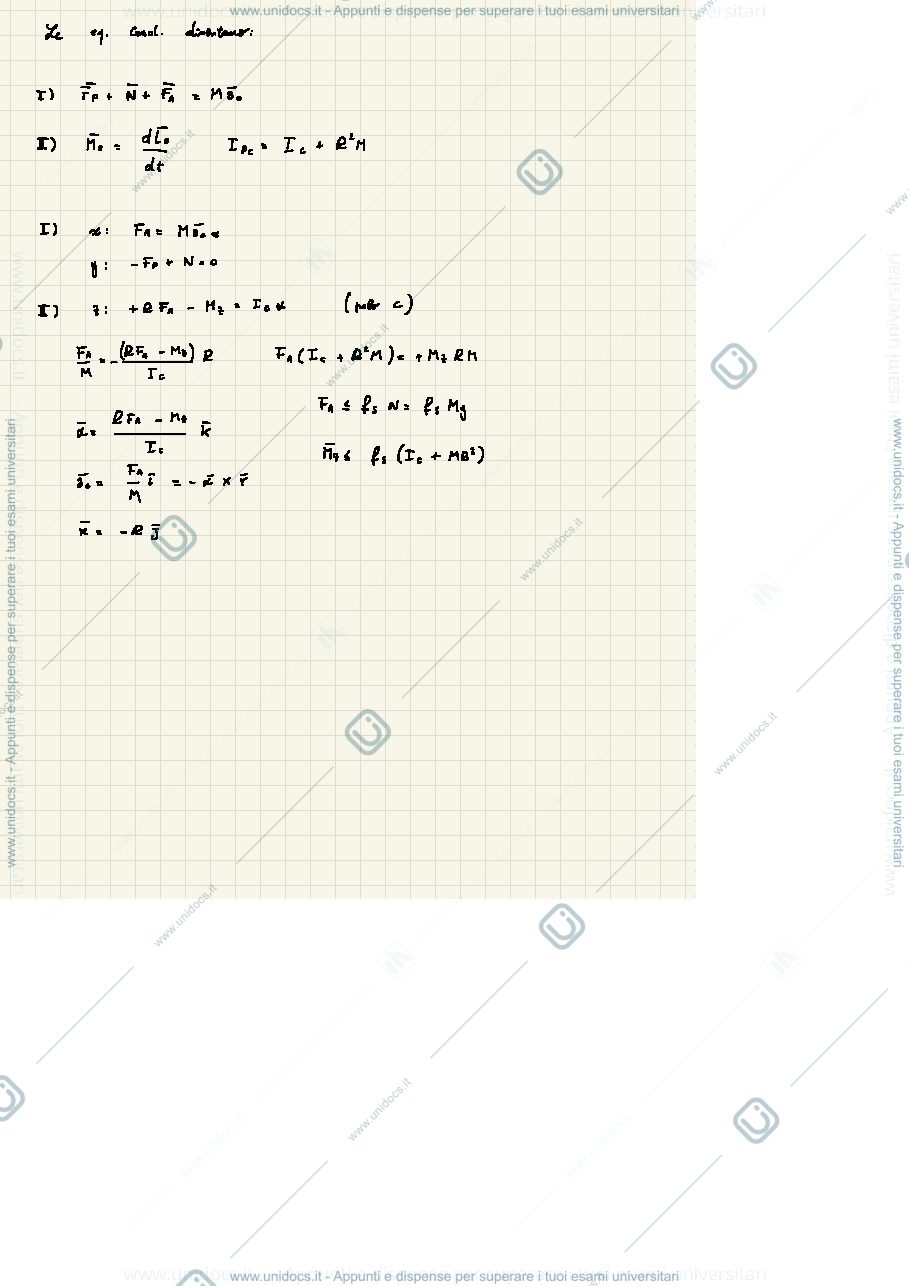 www.unidocs.it - Appunti e dispense per superare i tuoi esami universitari
Le eq. Card. diventano:
I) F̄p + N̄ + F̄A = M ā₀
II) M̄₀ = dL̄₀/dt I_Pc = I_c + R²M
I) x: F_A = M ā₀x
y: -F_P + N = 0
II) z: +R F_A - M_z = I_c α (polo c)
F_A/M = -(R F_A - M_z)/I_c R F_A (I_c + R²M) = + M_z R M
F_A ≤ f_s N = f_s Mg
ᾱ = (R F_A - M_z)/I_c k̄
M̄_z ≤ f_s (I_c + MR²)
ā₀ = F_A/M ī = -ᾱ × r̄
r̄ = -R j̄
www.unidocs.it
www.unidocs.it
www.unidocs.it
www.unidocs.it
www.unidocs.it
www.unidocs.it
www.unidocs.it - Appunti e dispense per superare i tuoi esami universitari
www.unidocs.it - Appunti e dispense per superare i tuoi esami universitari
www.unidocs.it - Appunti e dispense per superare i tuoi esami universitari